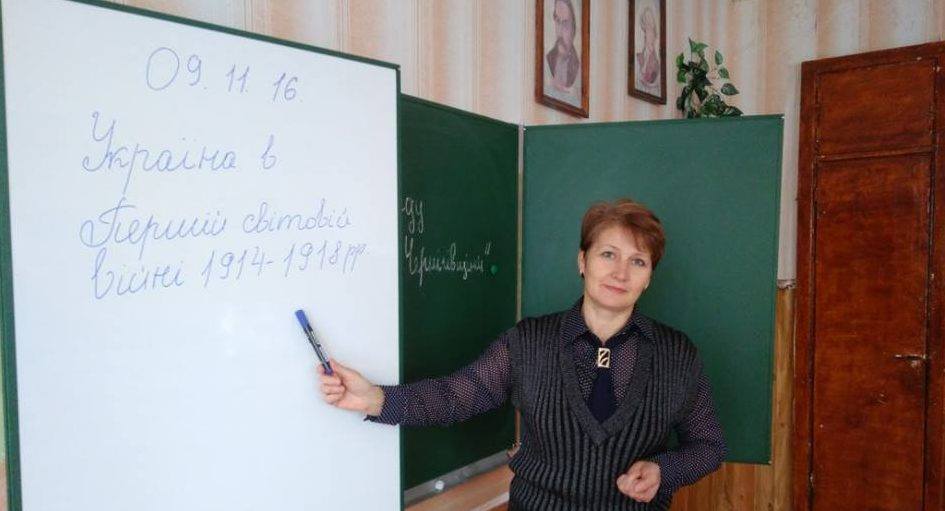 09. 11. 16.
Україна в
Першій світовій
війні 1914-1918 рр.
ду
Чернігівщини"